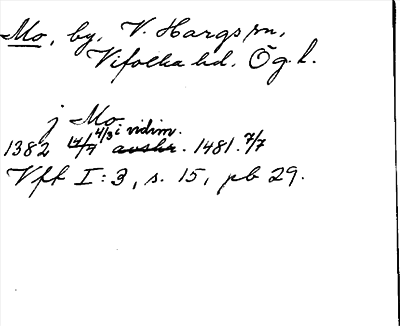 Mo, by, V. Hargs sn,
Vifolka hd, Ög. l.
j Mo
1382 17/7 4/3 i vidim. avskr. 1481. 7/7
Vfk I:3, s. 15, pb 29.